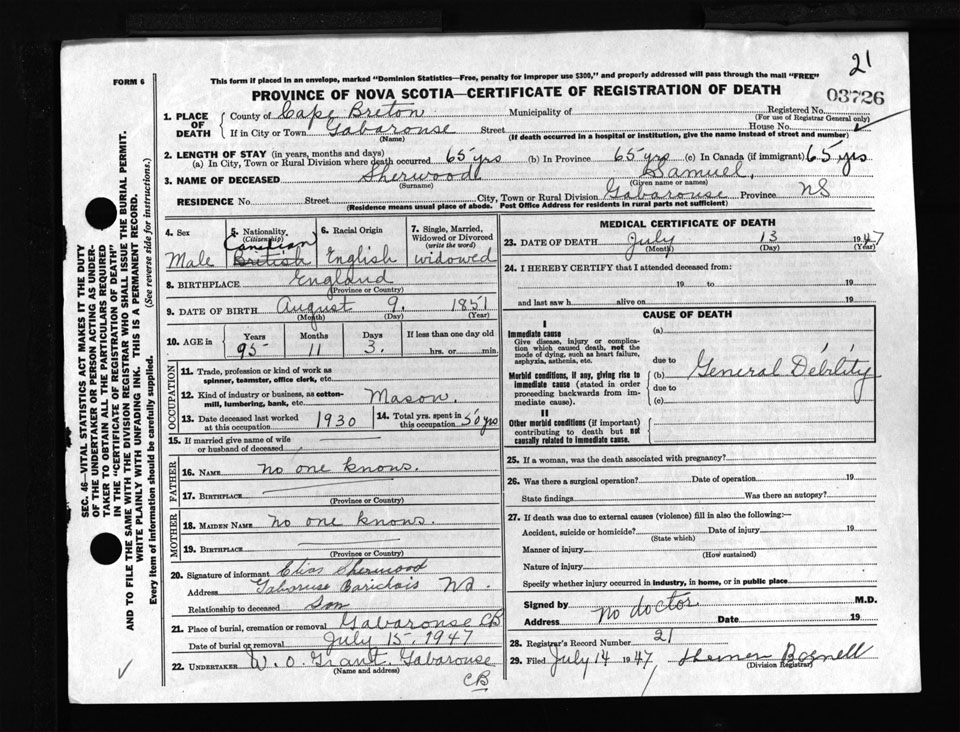 21
FORM 6
This form if placed in an envelope, marked "Dominion Statistics—Free, penalty for improper use $300," and properly addressed will pass through the mail "FREE"
PROVINCE OF NOVA SCOTIA—CERTIFICATE OF REGISTRATION OF DEATH
03726
1. PLACE OF DEATH
County of Cape Breton Municipality of Registered No.
(For use of Registrar General only)
If in City or Town Gabarouse Street House No.
(Name) (If death occurred in a hospital or institution, give the name instead of street and number)
2. LENGTH OF STAY (in years, months and days)
(a) In City, Town or Rural Division where death occurred 65 yrs (b) In Province 65 yrs (c) In Canada (if immigrant) 65 yrs
3. NAME OF DECEASED Sherwood Samuel,
(Surname) (Given name or names)
RESIDENCE No. Street City, Town or Rural Division Gabarouse Province NS
(Residence means usual place of abode. Post Office Address for residents in rural parts not sufficient)
4. Sex
Male
5. Nationality
(Citizenship)
Canadian
British
6. Racial Origin
English
7. Single, Married, Widowed or Divorced
(write the word)
widowed
8. BIRTHPLACE England
(Province or Country)
9. DATE OF BIRTH August 9, 1851
(Month) (Day) (Year)
10. AGE in
Years Months Days If less than one day old
95 11 3. hrs. or min.
OCCUPATION
11. Trade, profession or kind of work as
spinner, teamster, office clerk, etc.
12. Kind of industry or business, as cotton-
mill, lumbering, bank, etc. Mason.
13. Date deceased last worked
at this occupation 1930
14. Total yrs. spent in
this occupation 50 yrs
15. If married give name of wife
or husband of deceased
FATHER
16. NAME no one knows.
17. BIRTHPLACE
(Province or Country)
MOTHER
18. MAIDEN NAME no one knows.
19. BIRTHPLACE
(Province or Country)
20. Signature of informant Elias Sherwood
Address Gabarouse
Relationship to deceased Son
21. Place of burial, cremation or removal Gabarouse CB
Date of burial or removal July 15-1947
22. UNDERTAKER W. O. Grant. Gabarouse
(Name and address)
CB
MEDICAL CERTIFICATE OF DEATH
23. DATE OF DEATH July 13 1947
(Month) (Day)
24. I HEREBY CERTIFY that I attended deceased from:
19 to 19
and last saw h alive on 19
CAUSE OF DEATH
I
Immediate cause
Give disease, injury or complica-
tion which caused death, not the
mode of dying, such as heart failure,
asphyxia, asthenia, etc.
(a)
due to
Morbid conditions, if any, giving rise to
immediate cause (stated in order
proceeding backwards from im-
mediate cause).
(b) General Debility
due to
(c)
II
Other morbid conditions (if important)
contributing to death but not
causally related to immediate cause.
25. If a woman, was the death associated with pregnancy?
26. Was there a surgical operation? Date of operation 19
State findings Was there an autopsy?
27. If death was due to external causes (violence) fill in also the following:—
Accident, suicide or homicide? Date of injury 19
(State which)
Manner of injury
(How sustained)
Nature of injury
Specify whether injury occurred in industry, in home, or in public place
Signed by M.D.
no doctor
Address Date 19
28. Registrar's Record Number 21
29. Filed July 14 1947
(Division Registrar)
SEC. 46—VITAL STATISTICS ACT MAKES IT THE DUTY
OF THE UNDERTAKER OR PERSON ACTING AS UNDER-
TAKER TO OBTAIN ALL THE PARTICULARS REQUIRED
IN THE "CERTIFICATE OF REGISTRATION OF DEATH"
AND TO FILE THE SAME WITH THE DIVISION REGISTRAR WHO SHALL ISSUE THE BURIAL PERMIT.
WRITE PLAINLY WITH UNFADING INK. THIS IS A PERMANENT RECORD.
Every item of information should be carefully supplied. (See reverse side for instructions.)